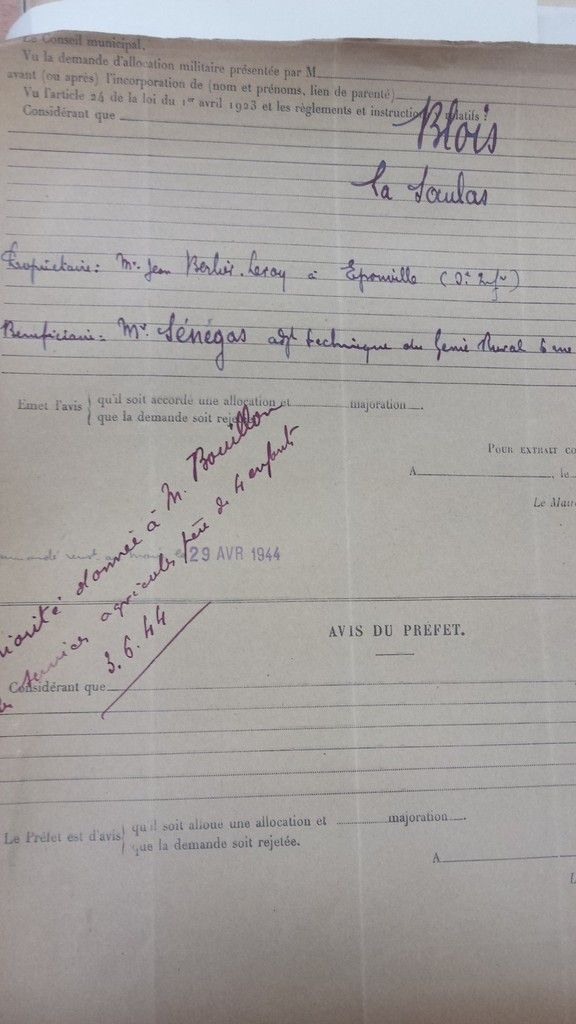 Le Conseil municipal,
Vu la demande d'allocation militaire présentée par M
avant (ou après) l'incorporation de (nom et prénoms, lien de parenté)
Vu l'article 24 de la loi du 1er avril 1923 et les règlements et instructions relatifs :
Considérant que
Blois
La Saulas
Propriétaire : Mr. Jean Leroy à Eponville
Bénéficiaire : Mr. Sénégas adjt technique du Génie Rural 6 me
Emet l'avis qu'il soit accordé une allocation et majoration
que la demande soit rejetée
POUR EXTRAIT CO
A , le
Le Mair
29 AVR 1944
riorité donnée à M. Bouillon
services agricoles père de 4 enfants
3.6.44
AVIS DU PRÉFET.
Considérant que
Le Préfet est d'avis qu'il soit alloué une allocation et majoration
que la demande soit rejetée.
A
L